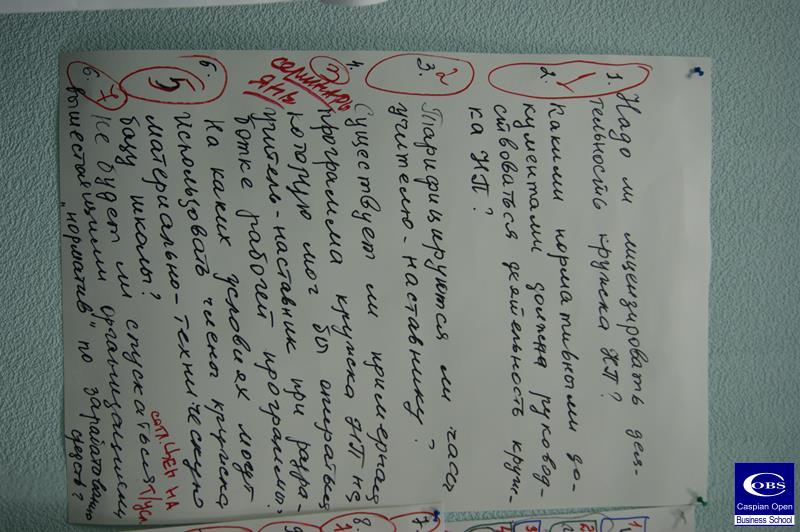 1. Надо ли лицензировать дея-
тельность кружка ЖП?
2. 1
Какими нормативными до-
кументами должна руковод-
ствоваться деятельность круж-
ка ЖП?
3. 2
Тарифицируются ли часы
учителю-наставнику?
4. 3
семинар
янв
Существует ли примерная
программа кружка ЖП на
которую мог бы опираться
учитель-наставник при разра-
ботке рабочей программы?
5. 5
На каких условиях могут
использовать члены кружка
материально-техническую
базу школы?
6. 7
Не будет ли спускаться
вышестоящими организациями
"норматив" по зарабатыванию
средств?
OBS
Caspian Open
Business School